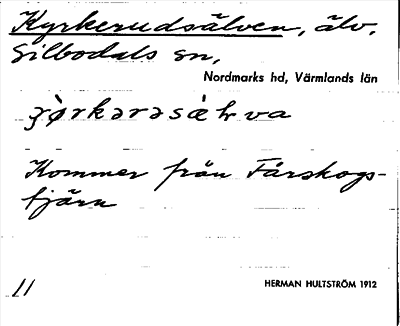 Kyrkerudsälven, älv.
Silbodals sn,
Nordmarks hd, Värmlands län
Kommer från Fårskogs-
tjärn
11
HERMAN HULTSTRÖM 1912